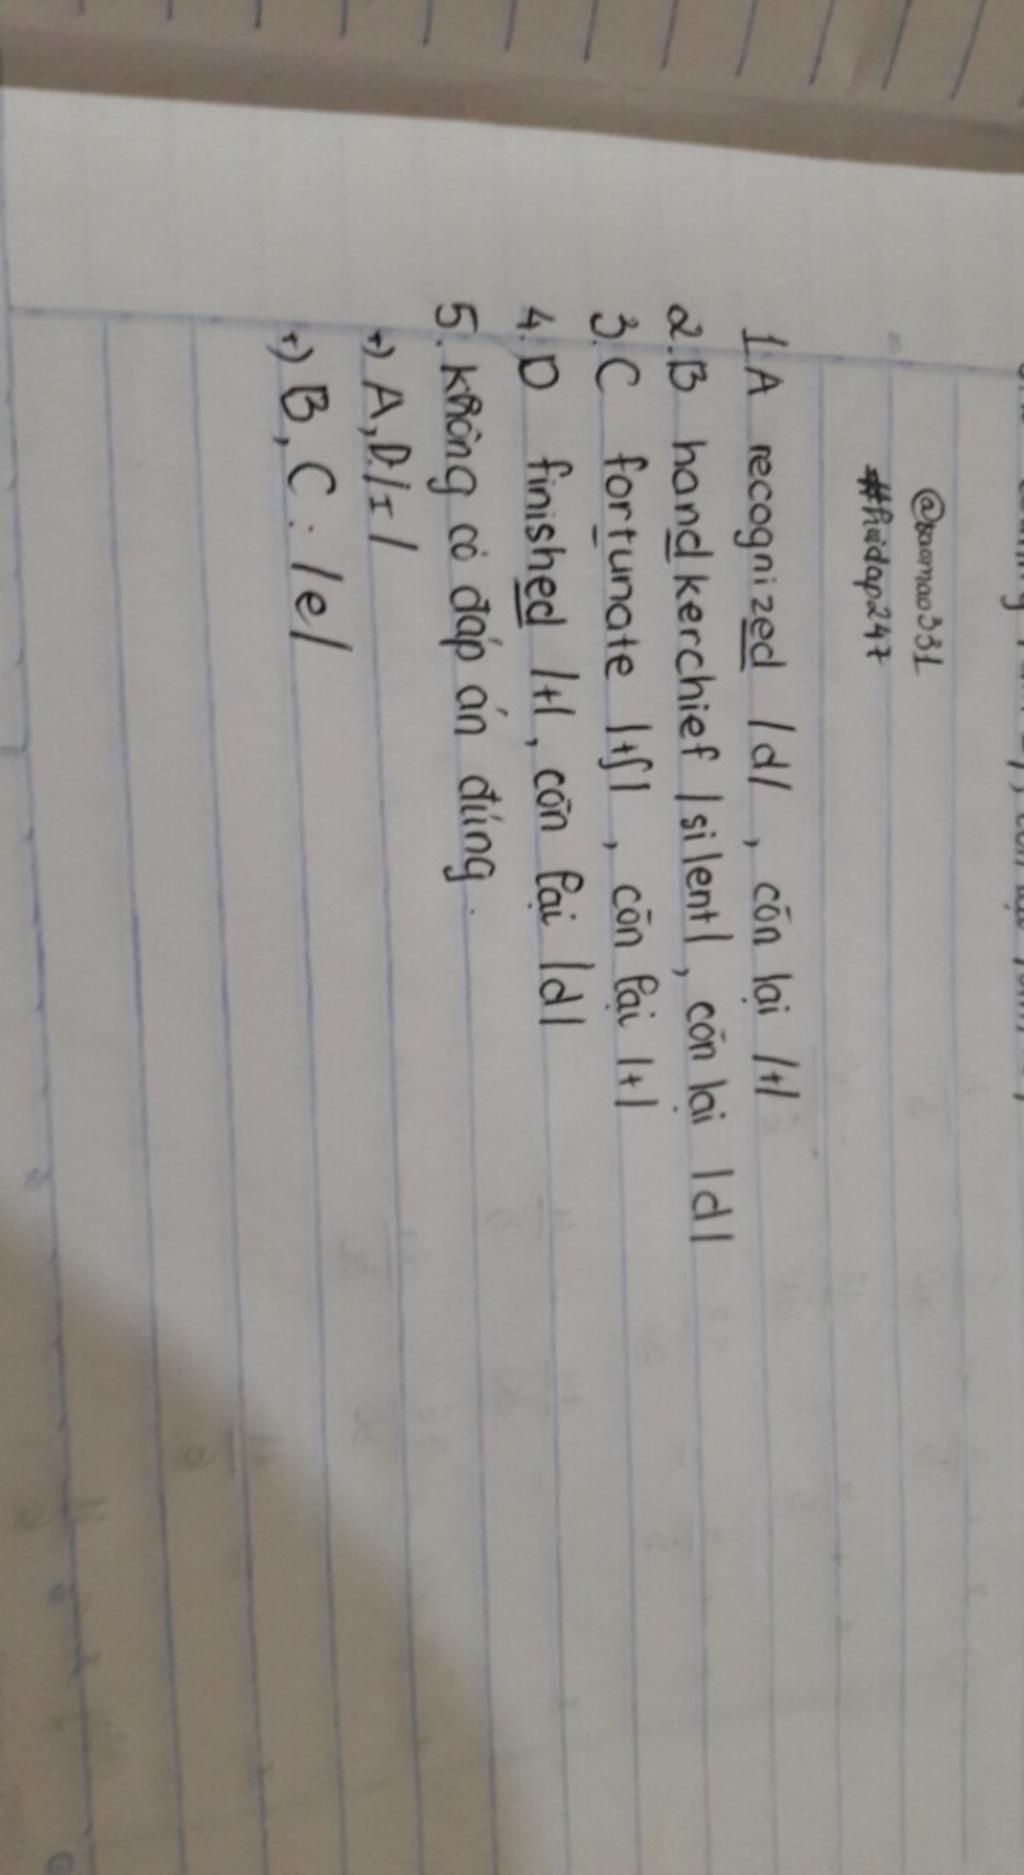 @saomao331
#hoidap247
1.A recognized /d/, còn lại /t/
2.B handkerchief /silent/, còn lại /d/
3.C fortunate /tʃ/, còn lại /t/
4.D finished /t/, còn lại /d/
5. Không có đáp án đúng.
+) A, D: /ɪ/
+) B, C: /e/